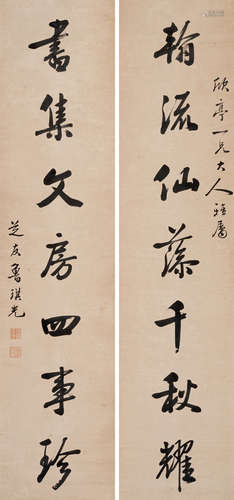 欣亭一兄大人雅屬
翰流仙藻千秋耀
書集文房四事珍
芝友魯琪光